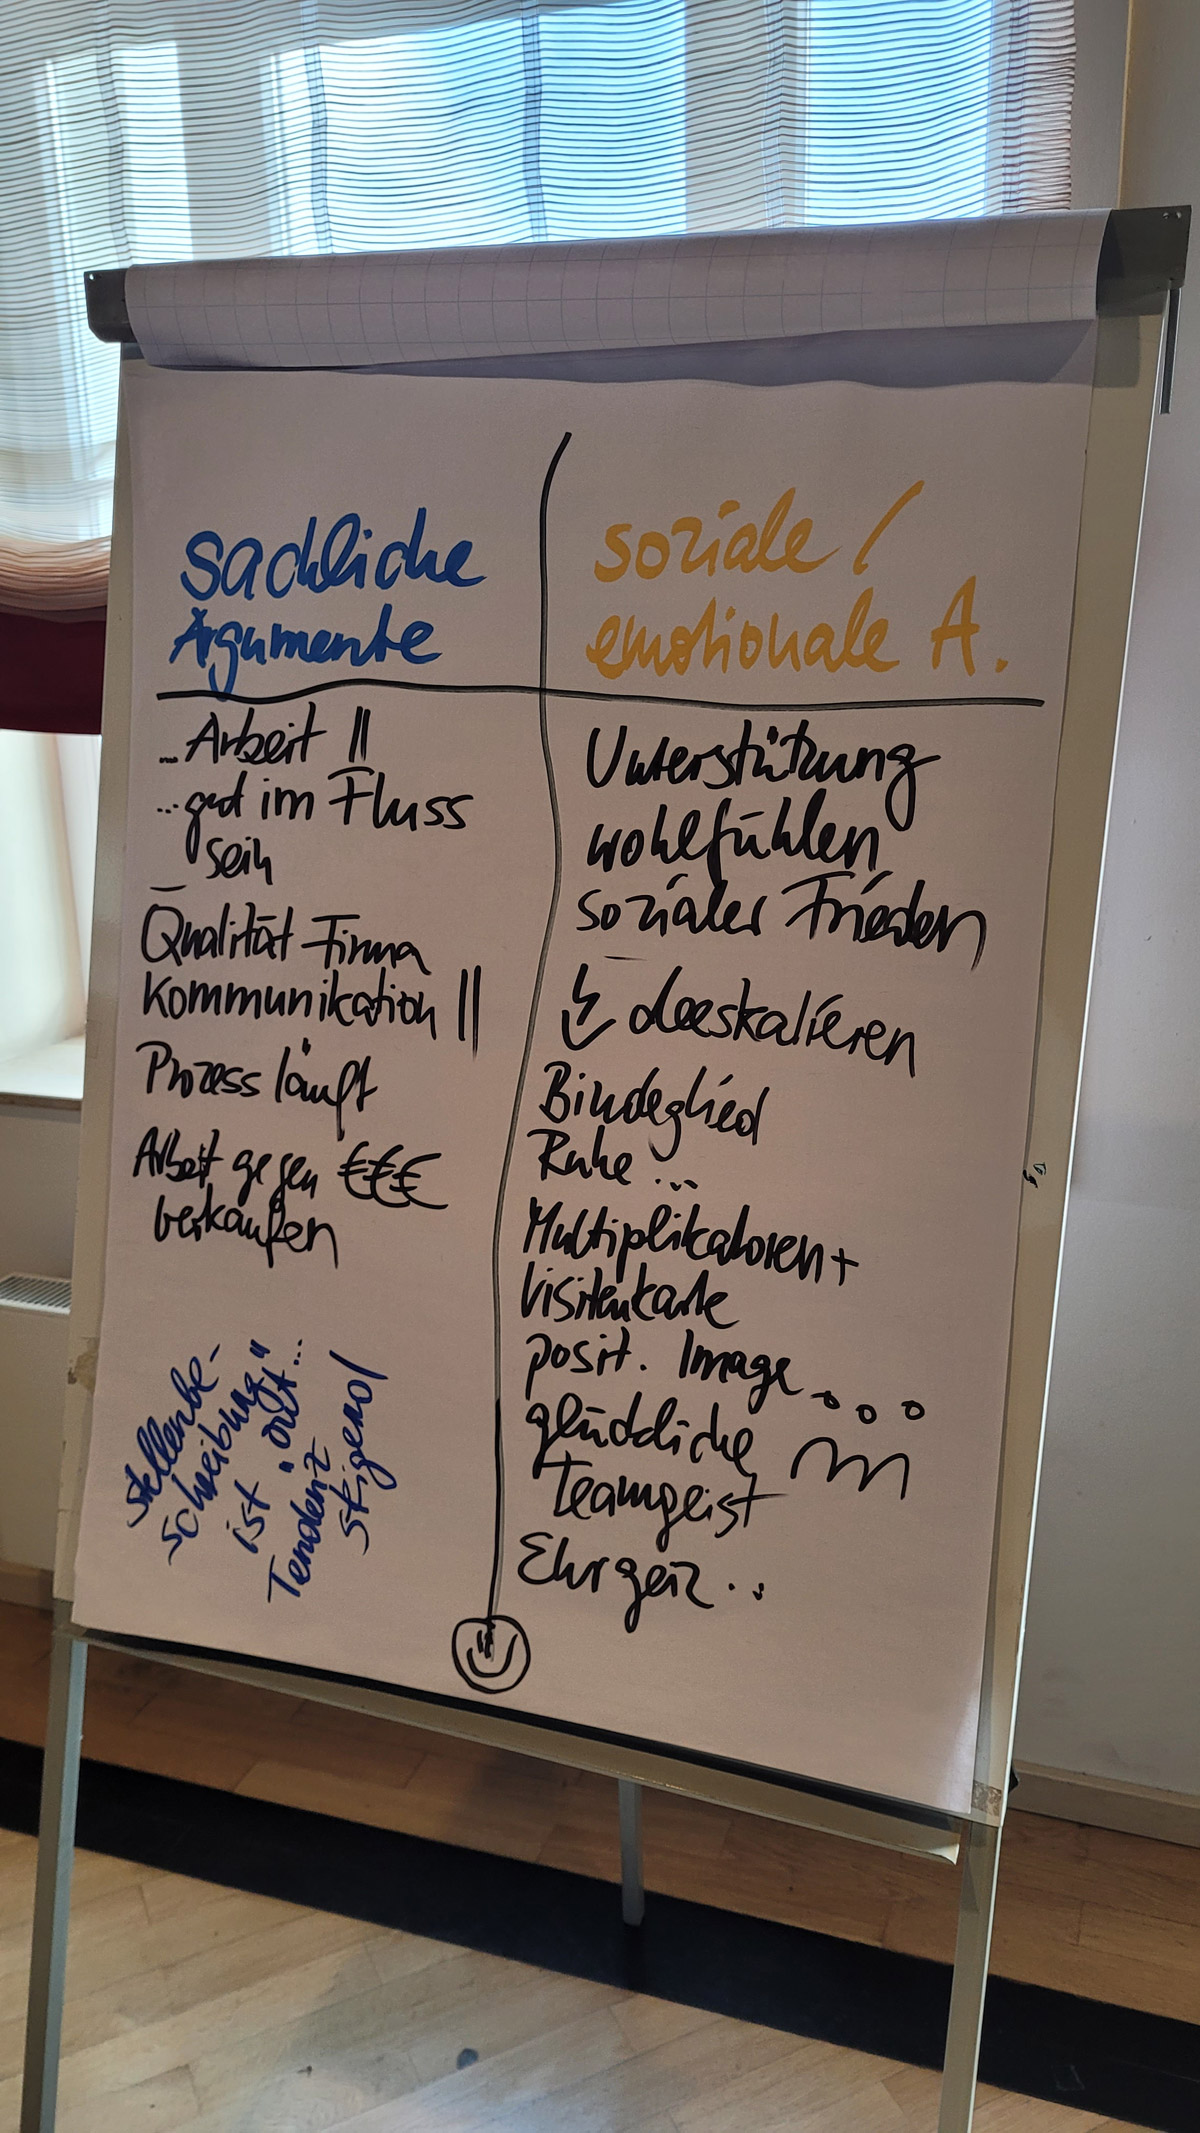 sachliche
Argumente
...Arbeit ||
...gut im Fluss
sein
Qualität Firma
Kommunikation ||
Prozess läuft
Arbeit gegen €€€
verkaufen
Stellenbe-
schreibung"
ist "out"...
Tendenz
steigend
soziale /
emotionale A.
Unterstützung
wohlfühlen
sozialer Frieden
deeskalieren
Bindeglied
Ruhe ...
Multiplikatoren +
Visitenkarte
posit. Image
glückliche
Teamgeist
Ehrgeiz ..